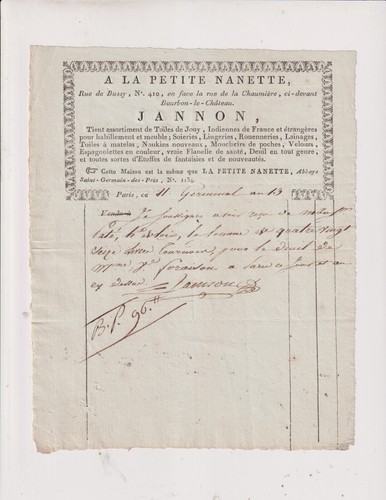 A LA PETITE NANETTE,
Rue de Bussy, N°. 410, en face la rue de la Chaumière, ci-devant
Bourbon-le-Château.
JANNON,
Tient assortiment de Toiles de Jouy, Indiennes de France et étrangères
pour habillement et meuble; Soieries, Lingeries, Rouenneries, Lainages,
Toiles à matelas, Nankins nouveaux, Mouchoirs de poches, Velours,
Espagnolettes en couleur, vraie Flanelle de santé, Deuil en tout genre,
et toutes sortes d'Etoffes de fantaisies et de nouveautés.
Cette Maison est la même que LA PETITE NANETTE, Abbaye
Saint-Germain-des-Prés, N°. 1134.
Paris, ce 11 Germinal an 13
Vendu à Je soussigné avoir reçu de
la somme de quatre vingt
seize livres tournois, pour le
Mme à Paris ce jour et an
cy dessus
B. P. 96 ₶